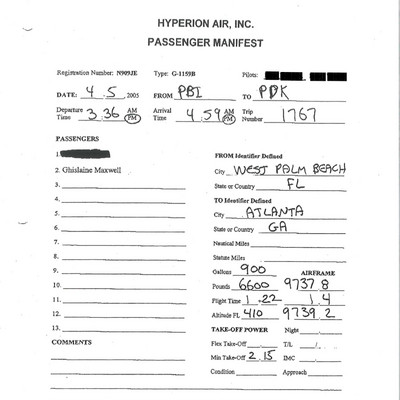 HYPERION AIR, INC.
PASSENGER MANIFEST
Registration Number: N909JE Type: G-1159B Pilots:
DATE: 4 . 5 2005 FROM PBI TO PDK
Departure Time 3:36 AM PM Arrival Time 4:59 AM PM Trip Number 1767
PASSENGERS
1.
2. Ghislaine Maxwell
3.
4.
5.
6.
7.
8.
9.
10.
11.
12.
13.
COMMENTS
FROM Identifier Defined
City WEST PALM BEACH
State or Country FL
TO Identifier Defined
City ATLANTA
State or Country GA
Nautical Miles
Statute Miles
Gallons 900 AIRFRAME
Pounds 6600 9737.8
Flight Time 1.22 1.4
Altitude FL 410 9739.2
TAKE-OFF POWER Night
Flex Take-Off T/L /
Min Take-Off 2.15 IMC
Condition Approach